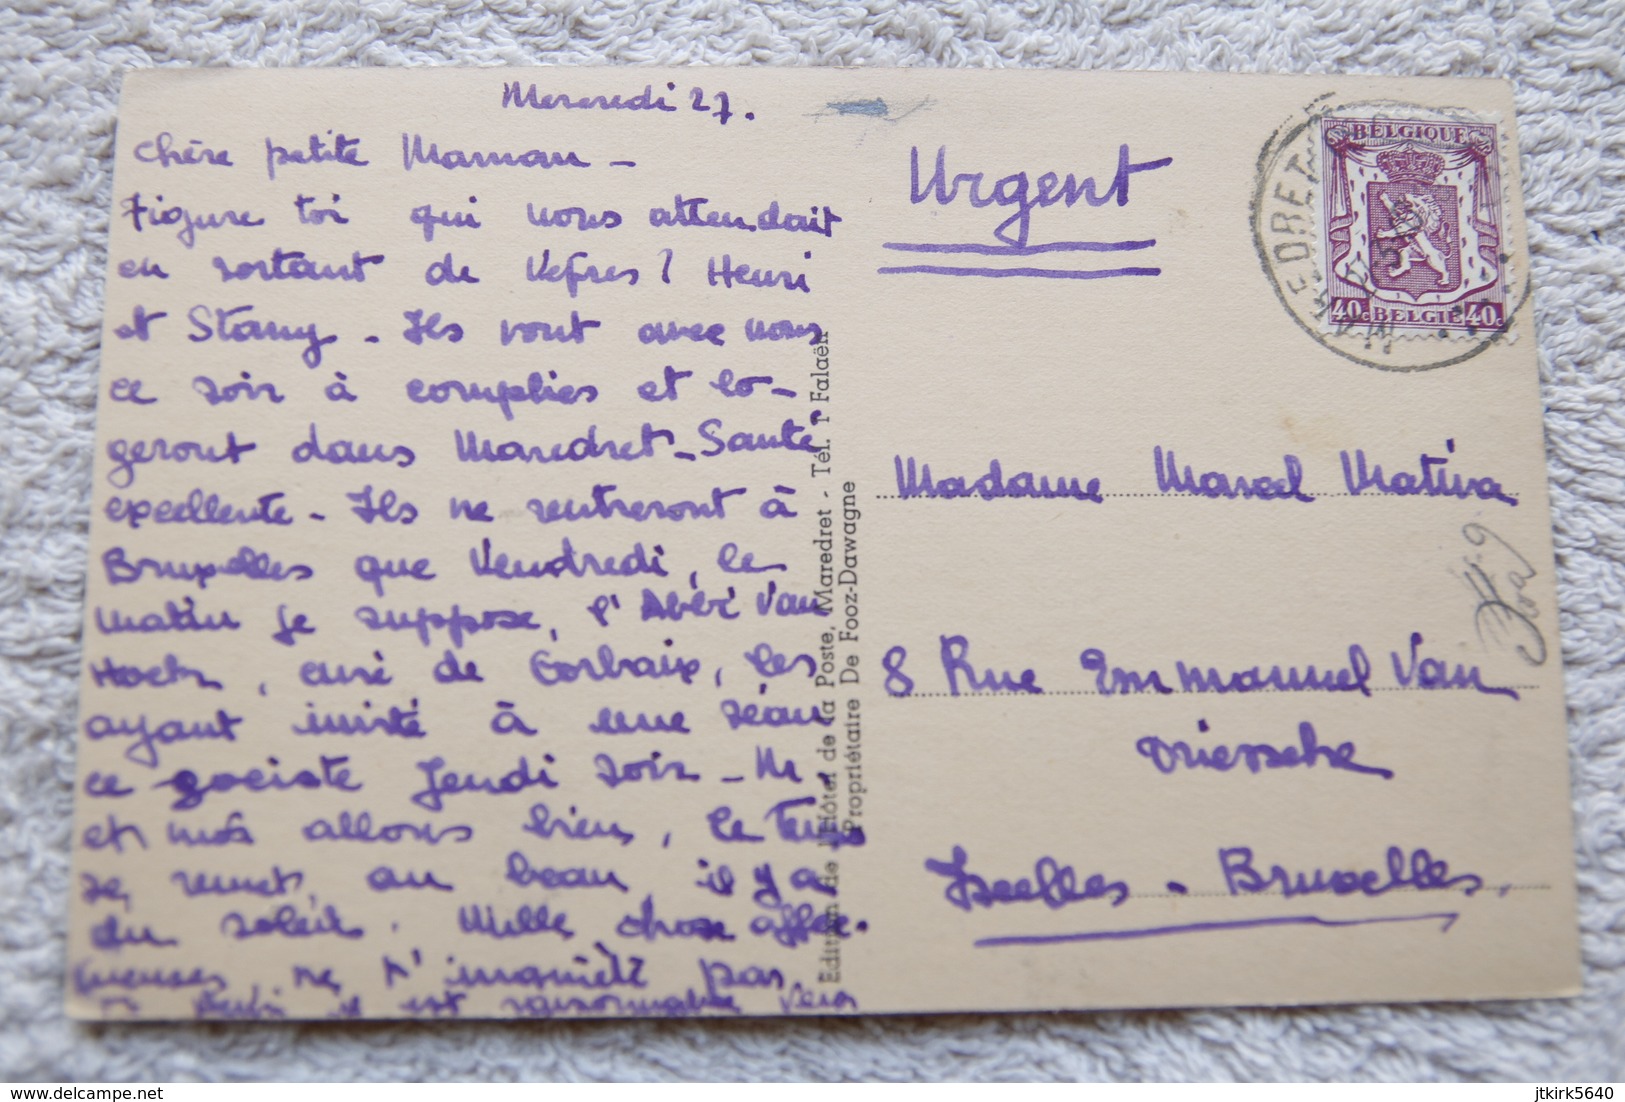 Mercredi 27.
Chère petite Maman -
Figure toi qui nous attendait
en sortant de Vêpres ? Henri
et Stany - Ils vont avec nous
ce soir à complies et lo-
geront dans Maredret - Santé
excellente - Ils ne rentreront à
Bruxelles que Vendredi, le
matin je suppose, l'Abbé Van
Hoek, curé de Corbaix, les
ayant invité à une séan
ce Jeudi soir - M.
et moi allons bien, le temps
se remet au beau, il y a
du soleil. Mille choses affec-
tueuses, ne t'inquiète pas.
il est raisonnable
Urgent
Madame Marcel Mativa
8 Rue Emmanuel Van
Driessche
Ixelles - Bruxelles.
Edition de l'Hôtel de la Poste, Maredret - Tél. 1 Falaën
Propriétaire De Fooz-Dawagne
BELGIQUE
40c BELGIË 40c
delcampe.net
jtkirk5640